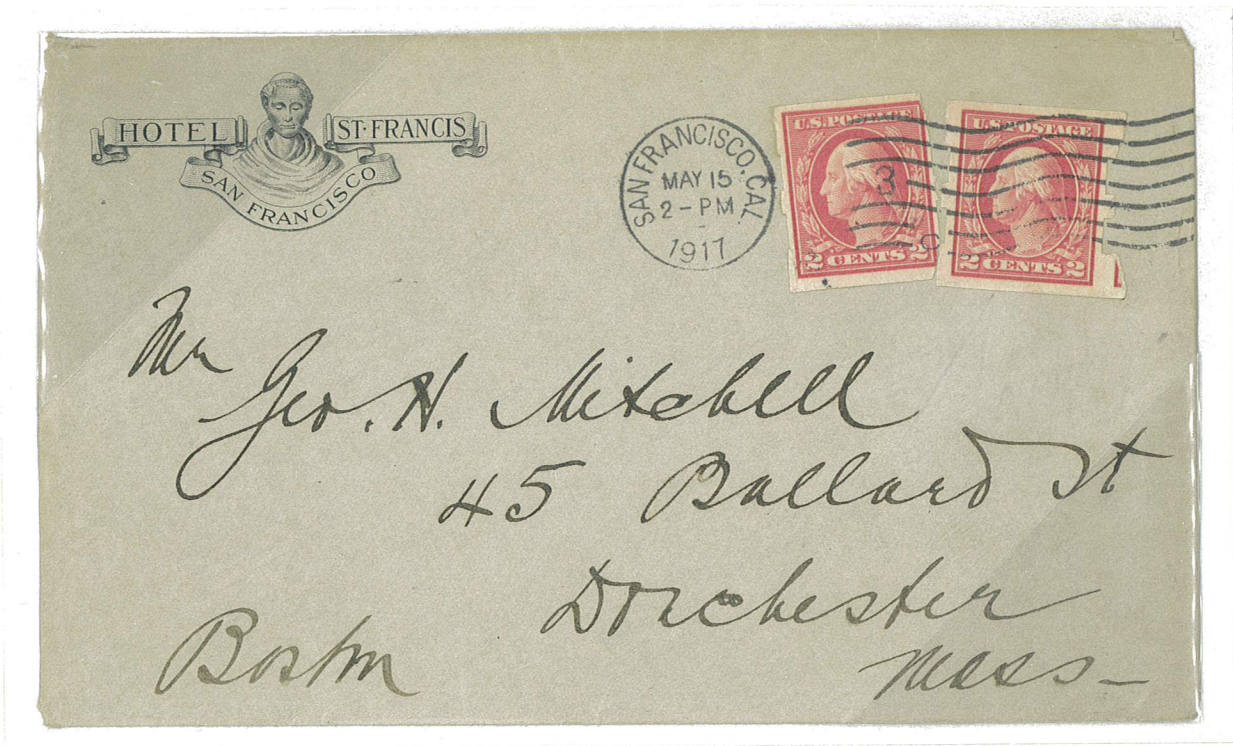 HOTEL ST·FRANCIS
SAN FRANCISCO
SAN FRANCISCO, CAL.
MAY 15
2-PM
1917
3
U.S. POSTAGE
2 CENTS 2
U.S. POSTAGE
2 CENTS 2
Mr
Geo. H. Mitchell
45 Ballard St
Dorchester
Boston
Mass-